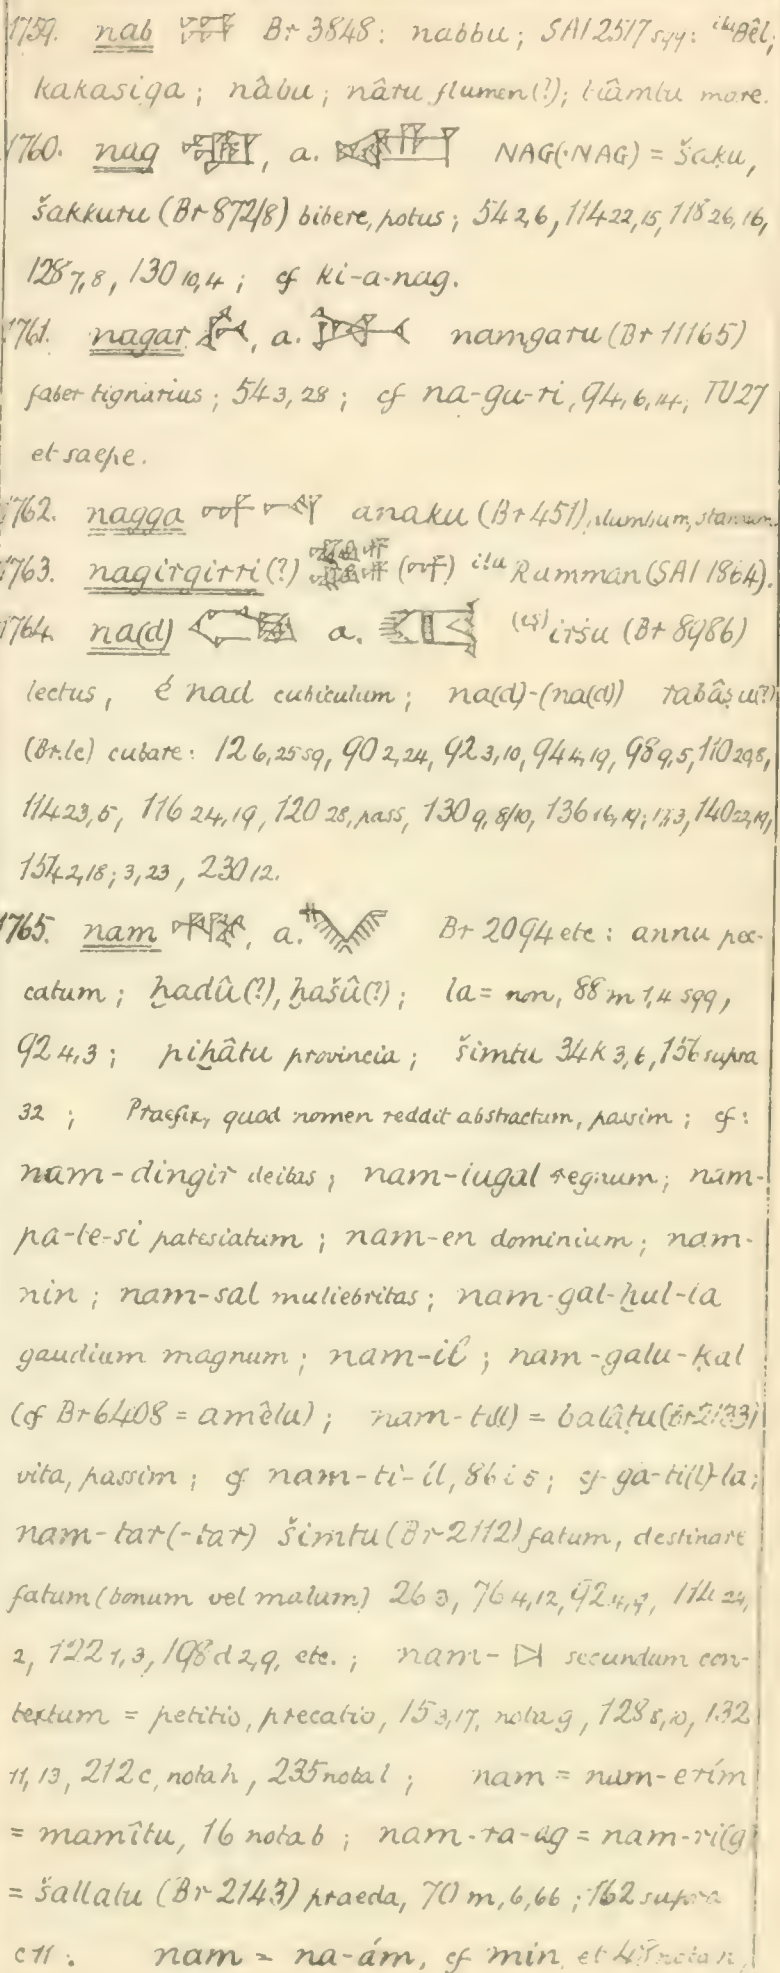 1759. nab 𒀮 Br 3848: nabbu; SAI 2517 sqq: ilu Bêl;
kakasiga; nâbu; nâru flumen(?); tiâmtu mare.
1760. nag 𒅘, a. NAG(·NAG) = šaḳu,
šakkuru (Br 872/8) bibere, potus; 54 2,6, 114 22,15, 118 26,16,
128 7,8, 130 10,4; cf ki-a-nag.
1761. nagar 𒉄, a. namgaru (Br 11165)
faber tignarius; 54 3,28; cf na-gu-ri, 94,6,14; TU 27
et saepe.
1762. nagga 𒀭𒈾 anaku (Br 451), plumbum, stannum.
1763. nagirgirri(?) (𒀭) ilu Rammân (SAI 1864).
1764. na(d) 𒈿 a. (iṣ) iršu (Br 8986)
lectus, é nad cubiculum; na(d)-(na(d)) rabâṣu(?)
(Br. lc) cubare: 12 6,25 sq, 90 2,24, 92 3,10, 94 4,19, 98 9,5, 110 20,8,
114 23,5, 116 24,19, 120 28, pass, 130 9,8/10, 136 16,19; 140 22,19,
154 2,18; 3,23, 230 12.
1765. nam 𒉆, a. Br 2094 etc: annu pec-
catum; ḫadû(?), ḫašû(?); la = non, 88 m 1,4 sqq,
92 4,3; piḫâtu provincia; šimtu 34 k 3,6, 156 supra
32; Praefix, quod nomen reddit abstractum, passim; cf:
nam-dingir deitas; nam-lugal regnum; nam-
pa-te-si patesiatum; nam-en dominium; nam-
nin; nam-sal muliebritas; nam-gal-ḫul-la
gaudium magnum; nam-il; nam-galu-ḳal
(cf Br 6408 = amêlu); nam-ti(l) = balâṭu (Br 2133)
vita, passim; cf nam-ti-íl, 86 i 5; cf ga-ti(l)-la;
nam-tar(-tar) šimtu (Br 2112) fatum, destinare
fatum (bonum vel malum) 26 3, 76 4,12, 92 4,9, 114 24,
2, 122 1,3, 198 d 2,9, etc.; nam- secundum con-
textum = petitio, precatio, 15 3,17, nota g, 128 8,10, 132
11,13, 212 c, nota h, 235 nota l; nam = nam-erím
= mamîtu, 16 nota b; nam-ra-ag = nam-ri(g)
= šallatu (Br 2143) praeda, 70 m, 6,66; 162 supra
c 11: nam = na-ám, cf min et 48 nota n,